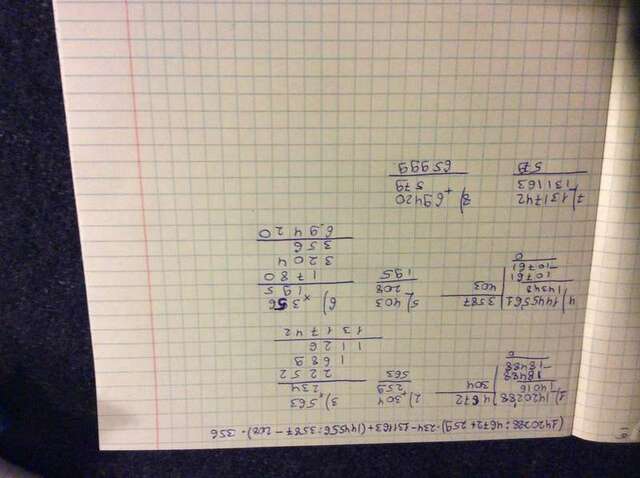 (1420288:4672+259)·234-131163+(144556:3587-208)·356
1) 1420288 4672 2) 304 3) 563
14016 304 259 234
18488 563 2252
-18488 1689
0 1126
131742
4) 1445561 3587 5) 403 6) 356
14348 403 208 ×195
10761 195 1780
-10761 3204
0 356
69420
7) 131742 8) 69420
131163 + 579
579 65999